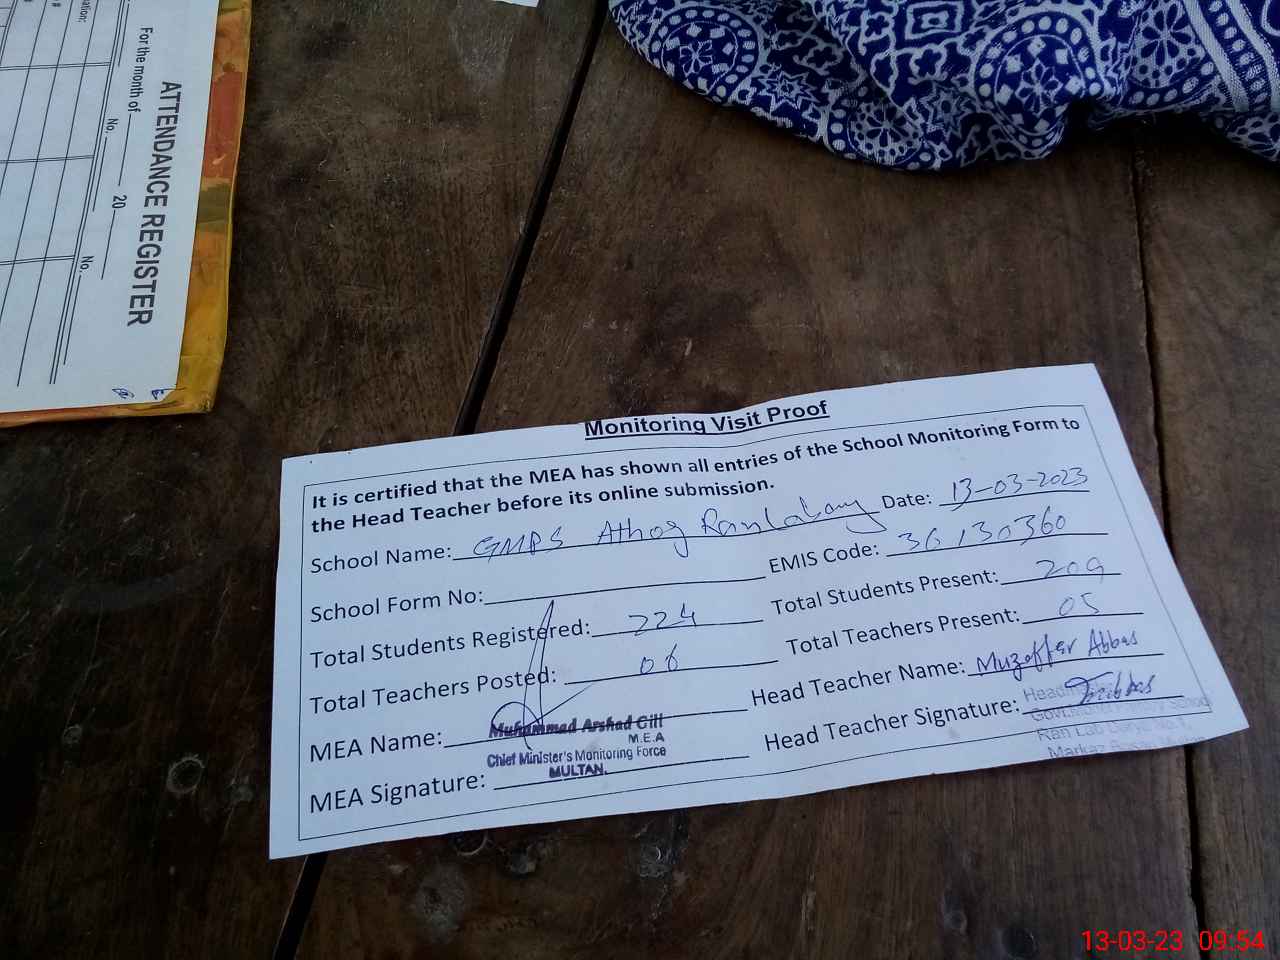 ATTENDANCE REGISTER
For the month of 20
No. No.
Monitoring Visit Proof
It is certified that the MEA has shown all entries of the School Monitoring Form to
the Head Teacher before its online submission.
School Name: GMPS Date: 13-03-2023
School Form No: EMIS Code: 36130360
Total Students Registered: 224 Total Students Present: 209
Total Teachers Posted: 06 Total Teachers Present: 05
MEA Name: Muhammad Arshad Gill Head Teacher Name: Muzaffar Abbas
M.E.A
Chief Minister's Monitoring Force
MULTAN.
MEA Signature: Head Teacher Signature:
13-03-23 09:54